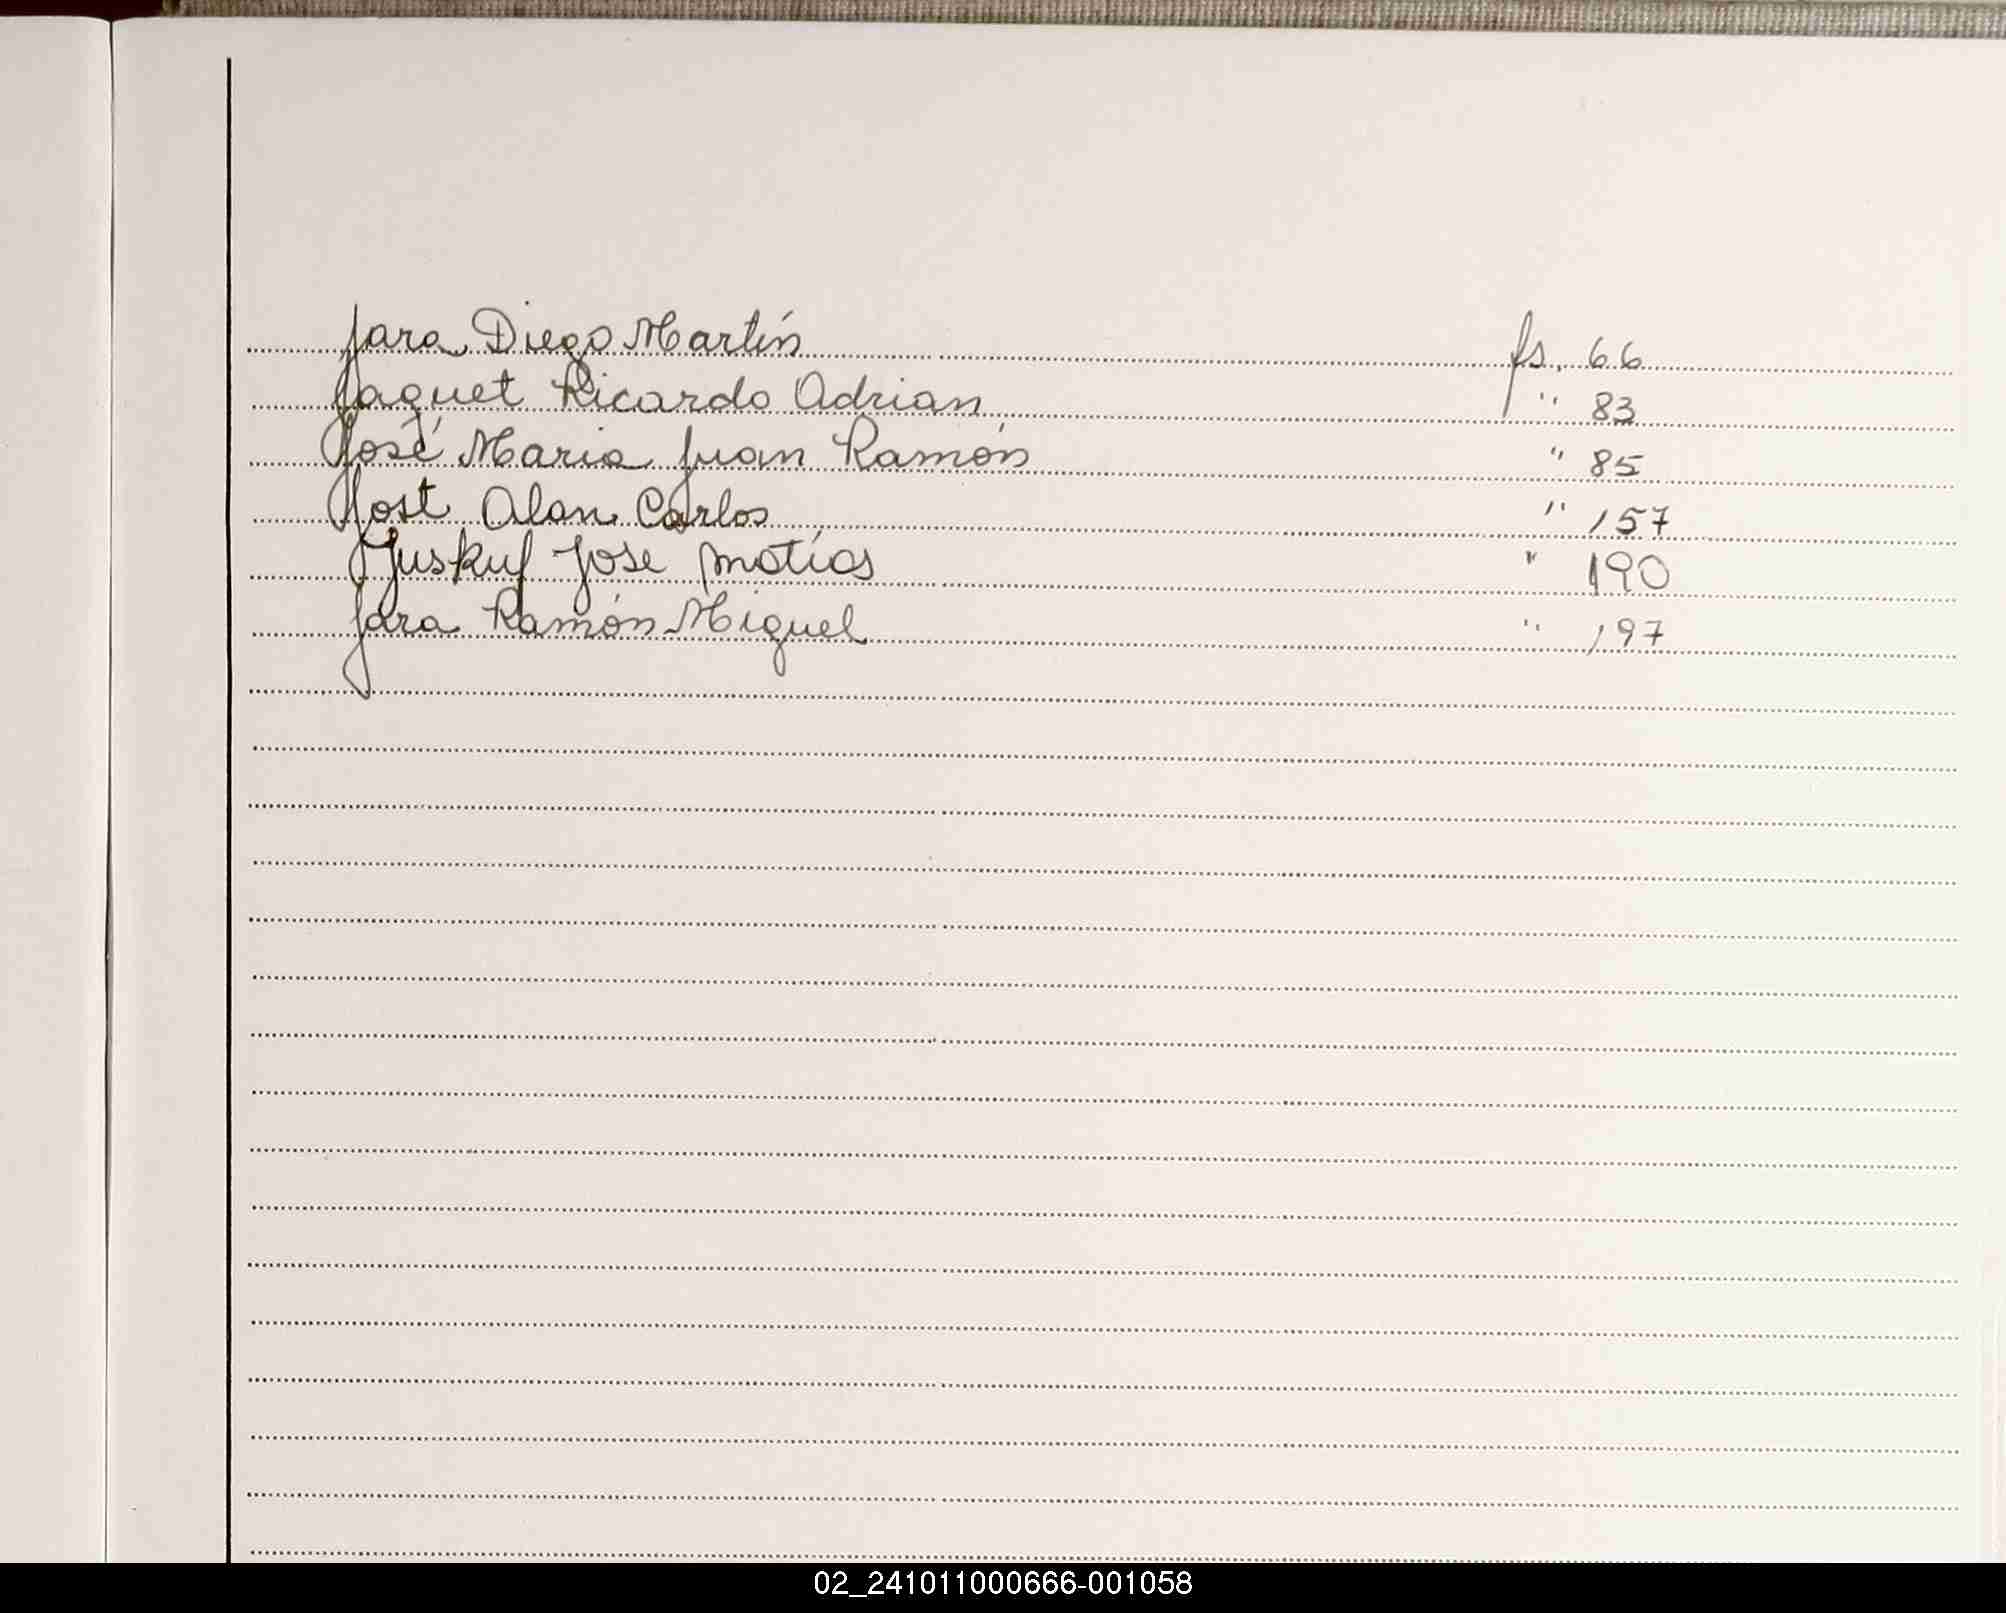 Jara Diego Martín fs. 66
Jaquet Ricardo Adrian " 83
José Maria Juan Ramón " 85
Jost Alan Carlos " 157
Juskuf Jose Matías " 190
Jara Ramón Miguel " 197
02_241011000666-001058